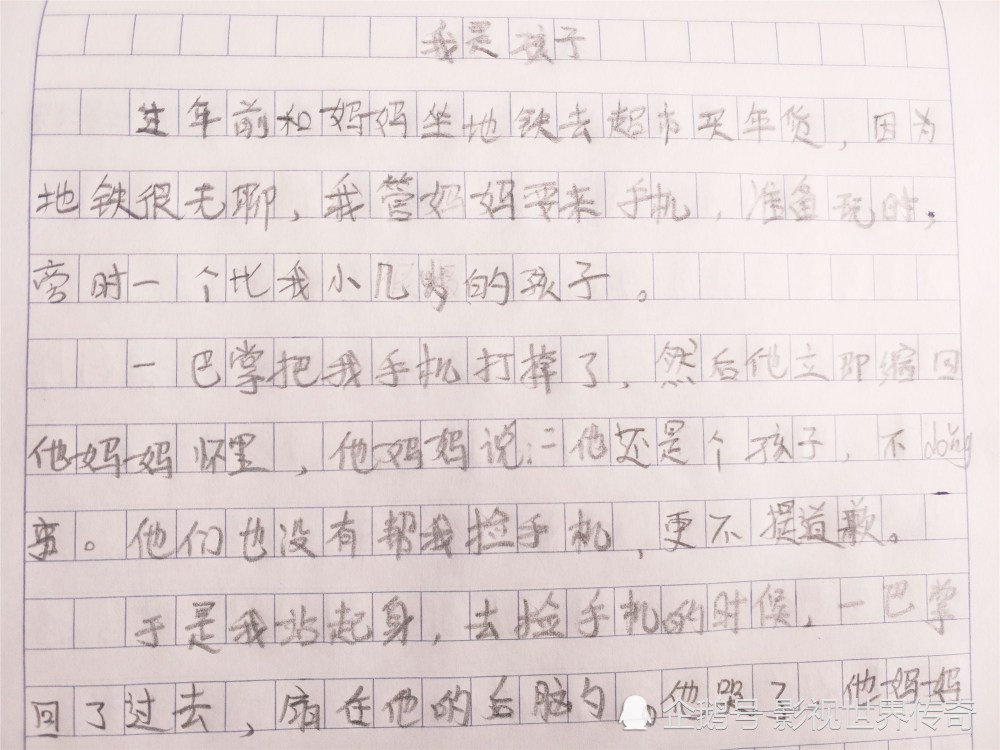 我是孩子
过年前和妈妈坐地铁去超市买年货，因为
地铁很无聊，我管妈妈要来手机，准备玩时，
旁时一个比我小几岁的孩子。
一巴掌把我手机打掉了，然后他立即缩回
他妈妈怀里，他妈妈说:“他还是个孩子，不dǒng
事。他们也没有帮我捡手机，更不提道歉。
于是我站起身，去捡手机的时候，一巴掌
回了过去，扇在他的后脑勺。他哭了，他妈妈
企鹅号 影视世界传奇